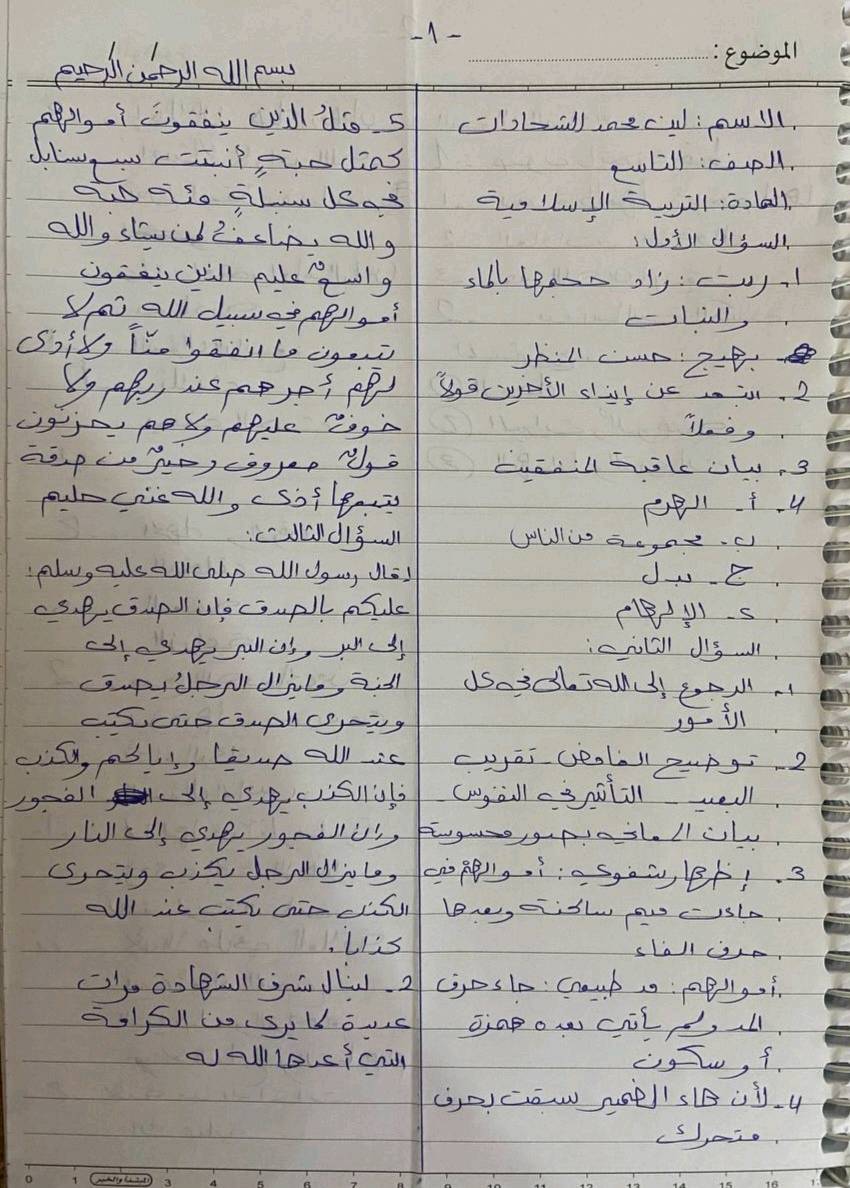 - ١ -
الموضوع :
بسم الله الرحمن الرحيم
الاسم : ليث محمد الشحادات
الصف : التاسع
المادة : التربية الإسلامية
السؤال الأول :
1- ربت : زاد حجمها بالماء
والنبات
بهيج : حسن المنظر
2- البعد عن إيذاء الآخرين قولاً
وفعلاً
3- بيان عاقبة المنفقين
4- أ- الهرم
ب- مجموعة من الناس
ج- بدل
د- الإلهام
السؤال الثاني :
1- الرجوع إلى الله تعالى في كل
الأمور
2- توضيح الغامض - تقريب
البعيد - التأثير في النفوس -
بيان المعاني بصور محسوسة
3- إظهار شفوي : أموالهم في
جاءت ميم ساكنة وبعدها
حرف الفاء
أموالهم : مد طبيعي : جاء حرف
المد ولم يأتي بعده همزة
أو سكون
4- لأن هاء الضمير سبقت بحرف
متحرك
5- مثلُ الذين ينفقونَ أموالهم
كمثل حبةٍ أنبتت سبع سنابل
في كل سنبلةٍ مئة حبة
والله يضاعفُ لمن يشاء والله
واسعٌ عليم الذين ينفقون
أموالهم في سبيل الله ثم لا
يتبعون ما انفقوا منّاً ولا أذى
لهم أجرهم عند ربهم ولا
خوفٌ عليهم ولا هم يحزنون
قولٌ معروف وخيرٌ من صدقة
يتبعها أذى والله غني حليم
السؤال الثالث :
1 قال رسول الله صلى الله عليه وسلم :
عليكم بالصدق فإن الصدق يهدي
إلى البر وإن البر يهدي إلى
الجنة وما يزال الرجلُ يصدق
ويتحرى الصدق حتى يكتب
عند الله صديقا وإياكم والكذب
فإن الكذب يهدي إلى الفجور
وإن الفجور يهدي إلى النار
وما يزال الرجل يكذب ويتحرى
الكذب حتى يكتب عند الله
كذابا .
2- لينال شرف الشهادة مرات
عديدة لما يرى من الكرامة
التي أعدها الله له
0 1 3 4 5 6 7 8 9 10 11 12 13 14 15 16